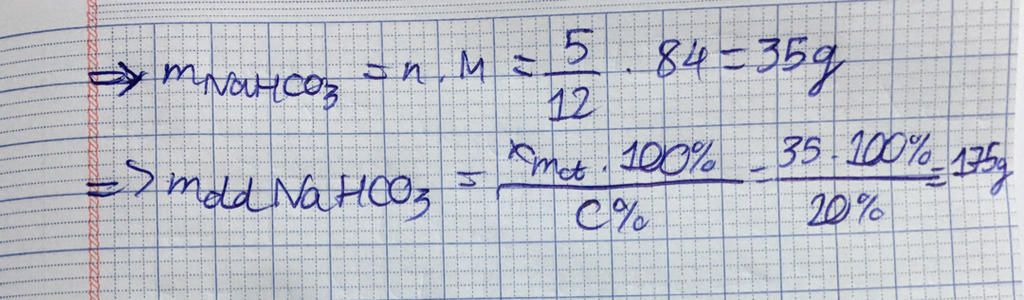 ⇒ mNaHCO3 = n . M = 5/12 . 84 = 35g
=> mdd NaHCO3 = mct . 100% / C% = 35 . 100% / 20% = 175g